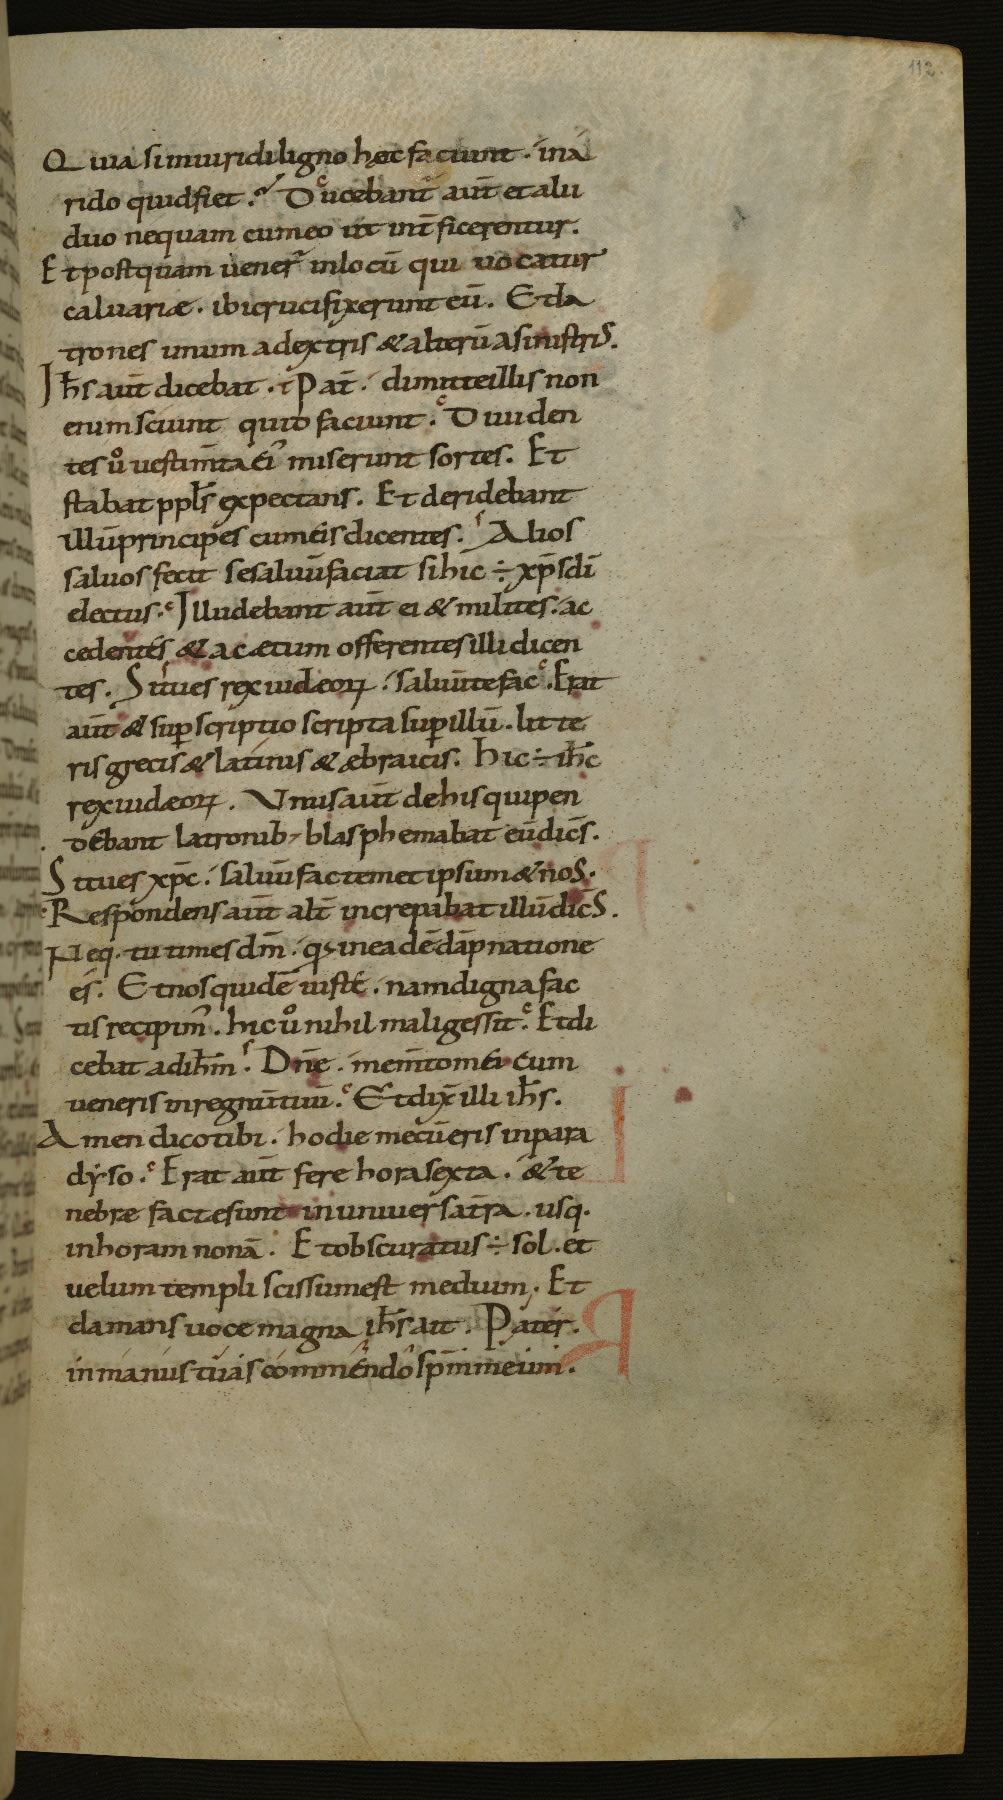 112.
Quia si in uiridi ligno hęc faciunt. in a
rido quid fiet. Ducebant̄ aut̄ et alii
duo nequam cum eo ut int̄ficerentur.
Et postquam uener̄ in locū qui uocatur
caluariæ. ibi crucifixerunt eū. Et la
trones unum a dextris & alterū a sinistris.
Ih̄s aut̄ dicebat. Pat̄. dimitte illis non
enim sciunt quid faciunt. Diuiden
tes ů uestim̄ta ei᾿ miserunt sortes. Et
stabat ppl̄s expectans. Et deridebant
illū principes cum eis dicentes. Alios
saluos fecit se saluū faciat si hic ÷ xp̄s dī
electus. Illudebant aut̄ ei & milites. ac
cedentes & acætum offerentes illi dicen
tes. Si tu es rex iudæoꝝ. saluū te fac. Erat
aut̄ & sup̄scriptio scripta sup̄ illū. litte
ris grecis & latinis & æbraicis. hic ÷ ih̄c
rex iudæoꝝ. Vnus aut̄ de his qui pen
debant latronib; blasphemabat eū dic̄s.
Si tu es xp̄c. saluū fac temet ipsum & nos.
Respondens aut̄ alt̄ increpabat illū dic̄s.
Neq. tu times dm̄. q; in ea dē dāpnatione
es. Et nos quidē iuste. nam digna fac
tis recipim᾿. hic ů nihil mali gessit. Et di
cebat ad ih̄m. Dn̄e. mem̄to mei cum
ueneris in regnū tuū. Et dix̄ illi ih̄s.
Amen dico tibi. hodie mecū eris in para
dyso. Erat aut̄ fere hora sexta. & te
nebræ factę sunt in uniuersā t̄ra. usq.
in horam nonā. Et obscuratus ÷ sol. et
uelum templi scissum est medium. Et
clamans uoce magna ih̄s ait. Pater.
in manus tuas commendo sp̄m meum.